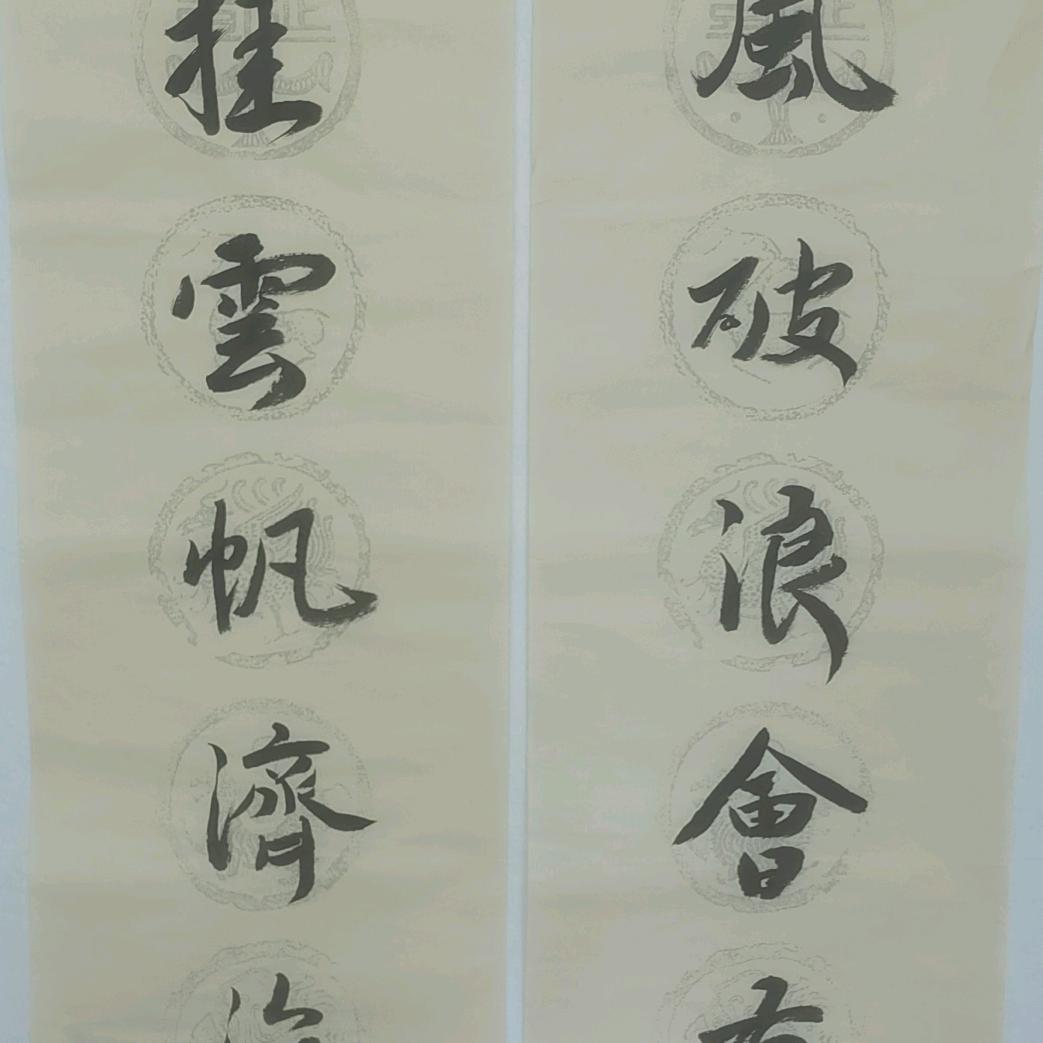 風破浪會
挂雲帆濟